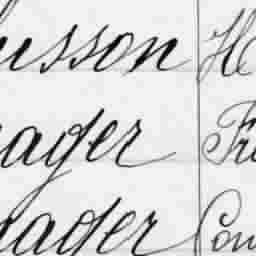 usson H
ager Fre
ader Con